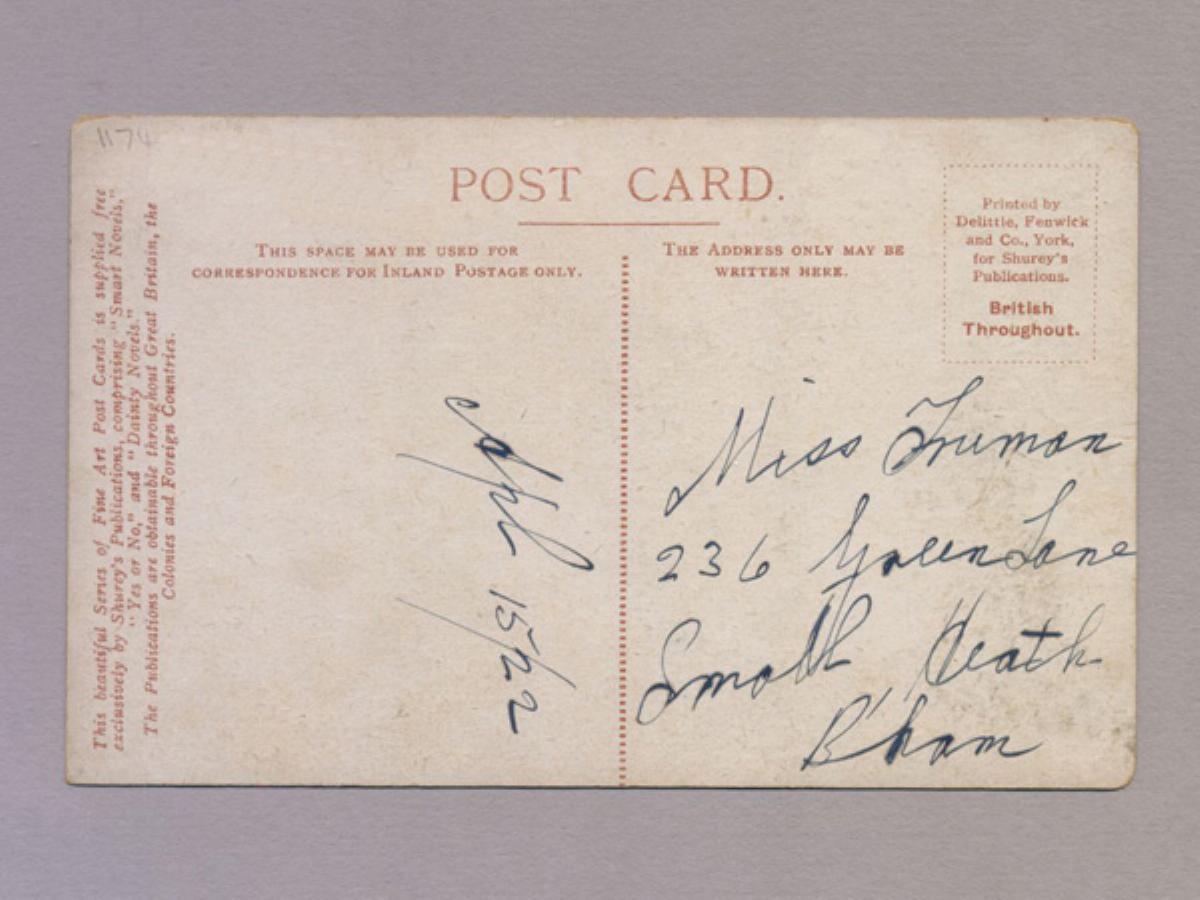 1174
This beautiful Series of Fine Art Post Cards is supplied free
exclusively by Shurey's Publications, comprising "Smart Novels,"
"Yes or No," and "Dainty Novels."
The Publications are obtainable throughout Great Britain, the
Colonies and Foreign Countries.
POST CARD.
THIS SPACE MAY BE USED FOR
CORRESPONDENCE FOR INLAND POSTAGE ONLY.
15/22
THE ADDRESS ONLY MAY BE
WRITTEN HERE.
Printed by
Delittle, Fenwick
and Co., York,
for Shurey's
Publications.
British
Throughout.
Miss Truman
236 Green Lane
Small Heath
B'ham